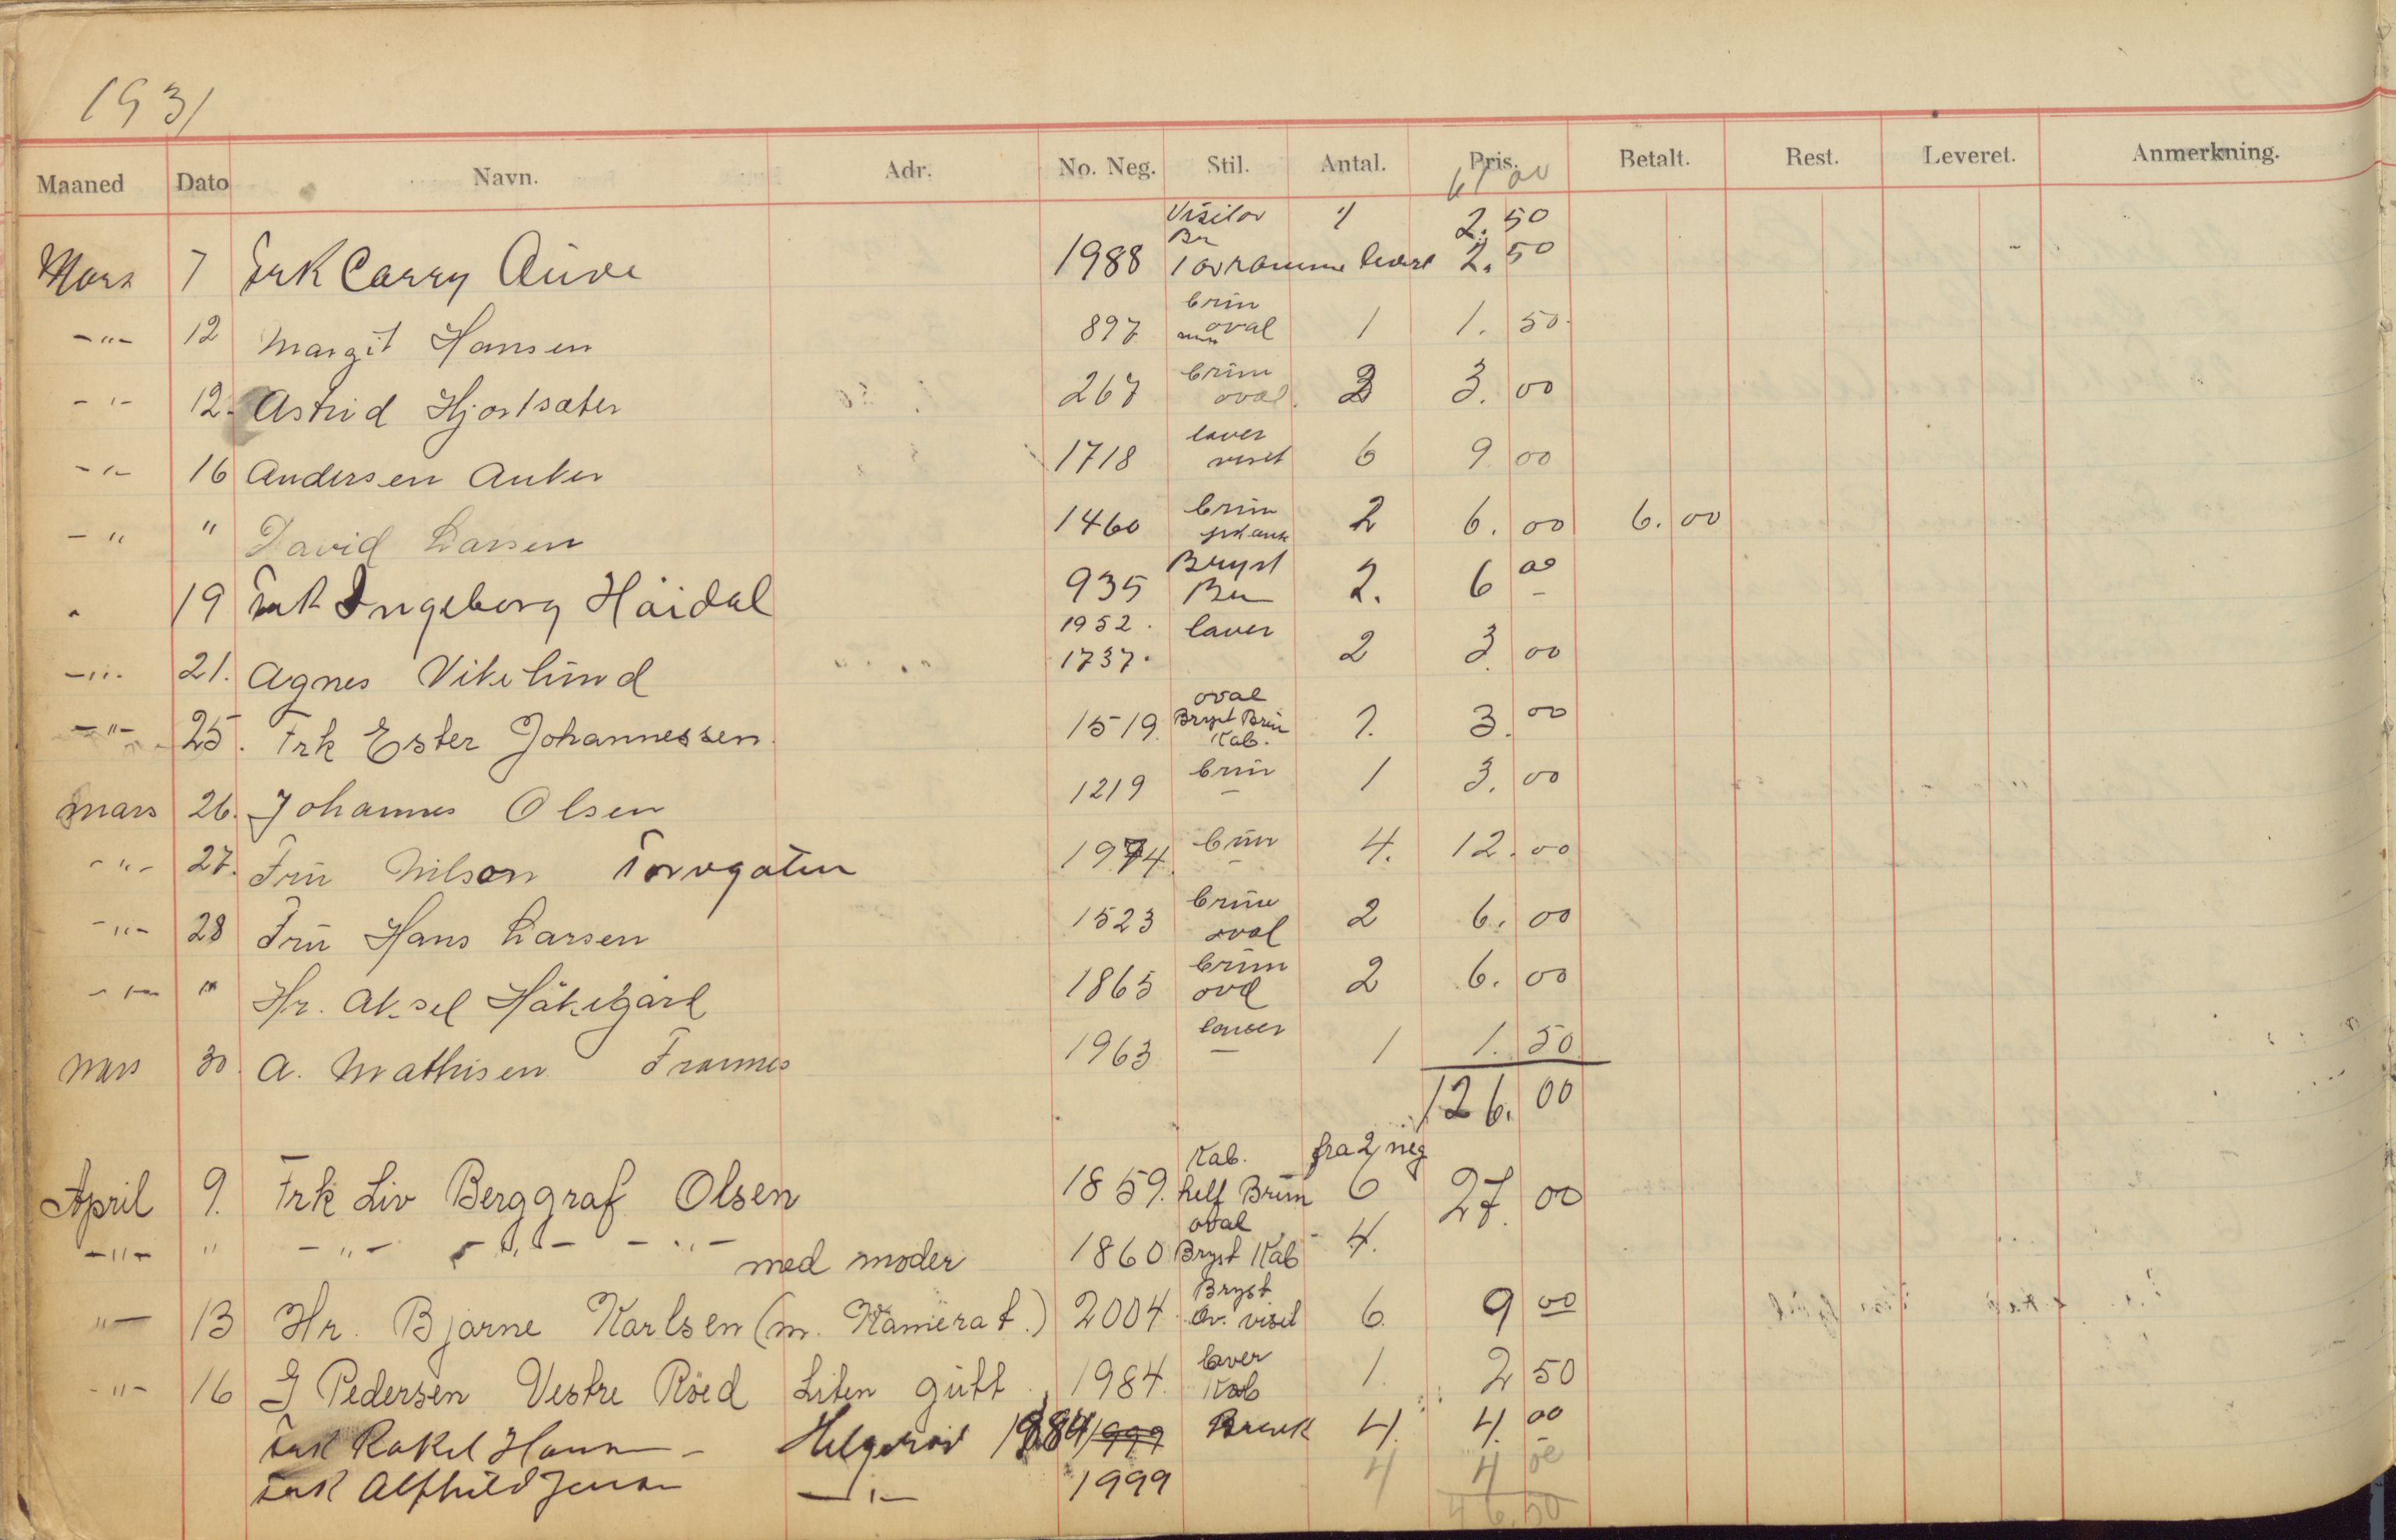 1931
Maaned Dato Navn. Adr. No. Neg. Stil. Antal. Pris. Betalt. Rest. Leveret. Anmerkning.
61 00
Visit ov 1 2.50
Mars 7 Frk Carry Auve 1988 Br 1 ov ramme 2.50
-"- 12 Margit Hansen 897 brun oval 1 1.50
-"- 12. Astrid Hjortsæter 267 brun oval 2 3.00
-"- 16 Andersen Anker 1718 laver visit 6 9 00
-" " David Larsen 1460 brun 2 6.00 6.00
" 19 Frk Ingeborg Häidal 935 Bryst Bru 2. 6 00
1952. laver
-"- 21. Agnes Vikelund 1737. 2 3.00
-"- 25. Frk Ester Johannessen 1519. oval Bryst Brun Kab. 1. 3.00
mars 26. Johannes Olsen 1219 brun - 1 3.00
-"- 27. Fru Nilson Torvgaten 1974 brun - 4. 12.00
-"- 28 Fru Hans Larsen 1523 brun oval 2 6.00
-"- " Hr. Aksel Håkegård 1865 brun oval 2 6.00
mars 30. A. Mathisen Framnes 1963 laver - 1 1.50
126.00
Kab. fra 2 neg
April 9. Frk Liv Berggraf Olsen 1859. helf Brun 6 27.00
-"- " -"- -"- -"- med moder 1860 oval Bryst Kab 4.
"- 13 Hr. Bjarne Karlsen (m. Kamerat.) 2004. Bryst Ov. visit 6. 9 00
-"- 16 G Pedersen Vestre Röed Liten gutt 1984. laver Kab 1. 2 50
Frk Rakel Hansen - Helgeröd 1984 1999 4. 4. 00
Frk Alfhild Jensen -"- 1999 4 4 00
46.50